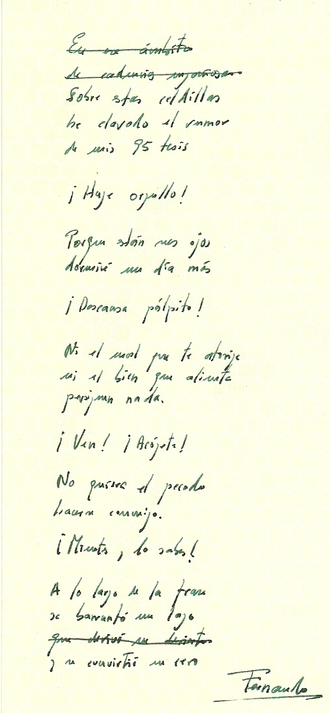 En ese ámbito
de cadencia
Sobre estas celdillas
he clavado el rumor
de mis 95 tesis
¡Huye orgullo!
Porque están mis ojos
dormiré un día más
¡Descansa pálpito!
Ni el mal que te
ni el bien que alimenta
nada.
¡Ven! ¡Acójete!
No quisiera el pecado
hacer conmigo.
¡Mientes, lo sabes!
A lo largo de la frase
se barruntó un lazo
que
y se convirtió en cero
Fernando